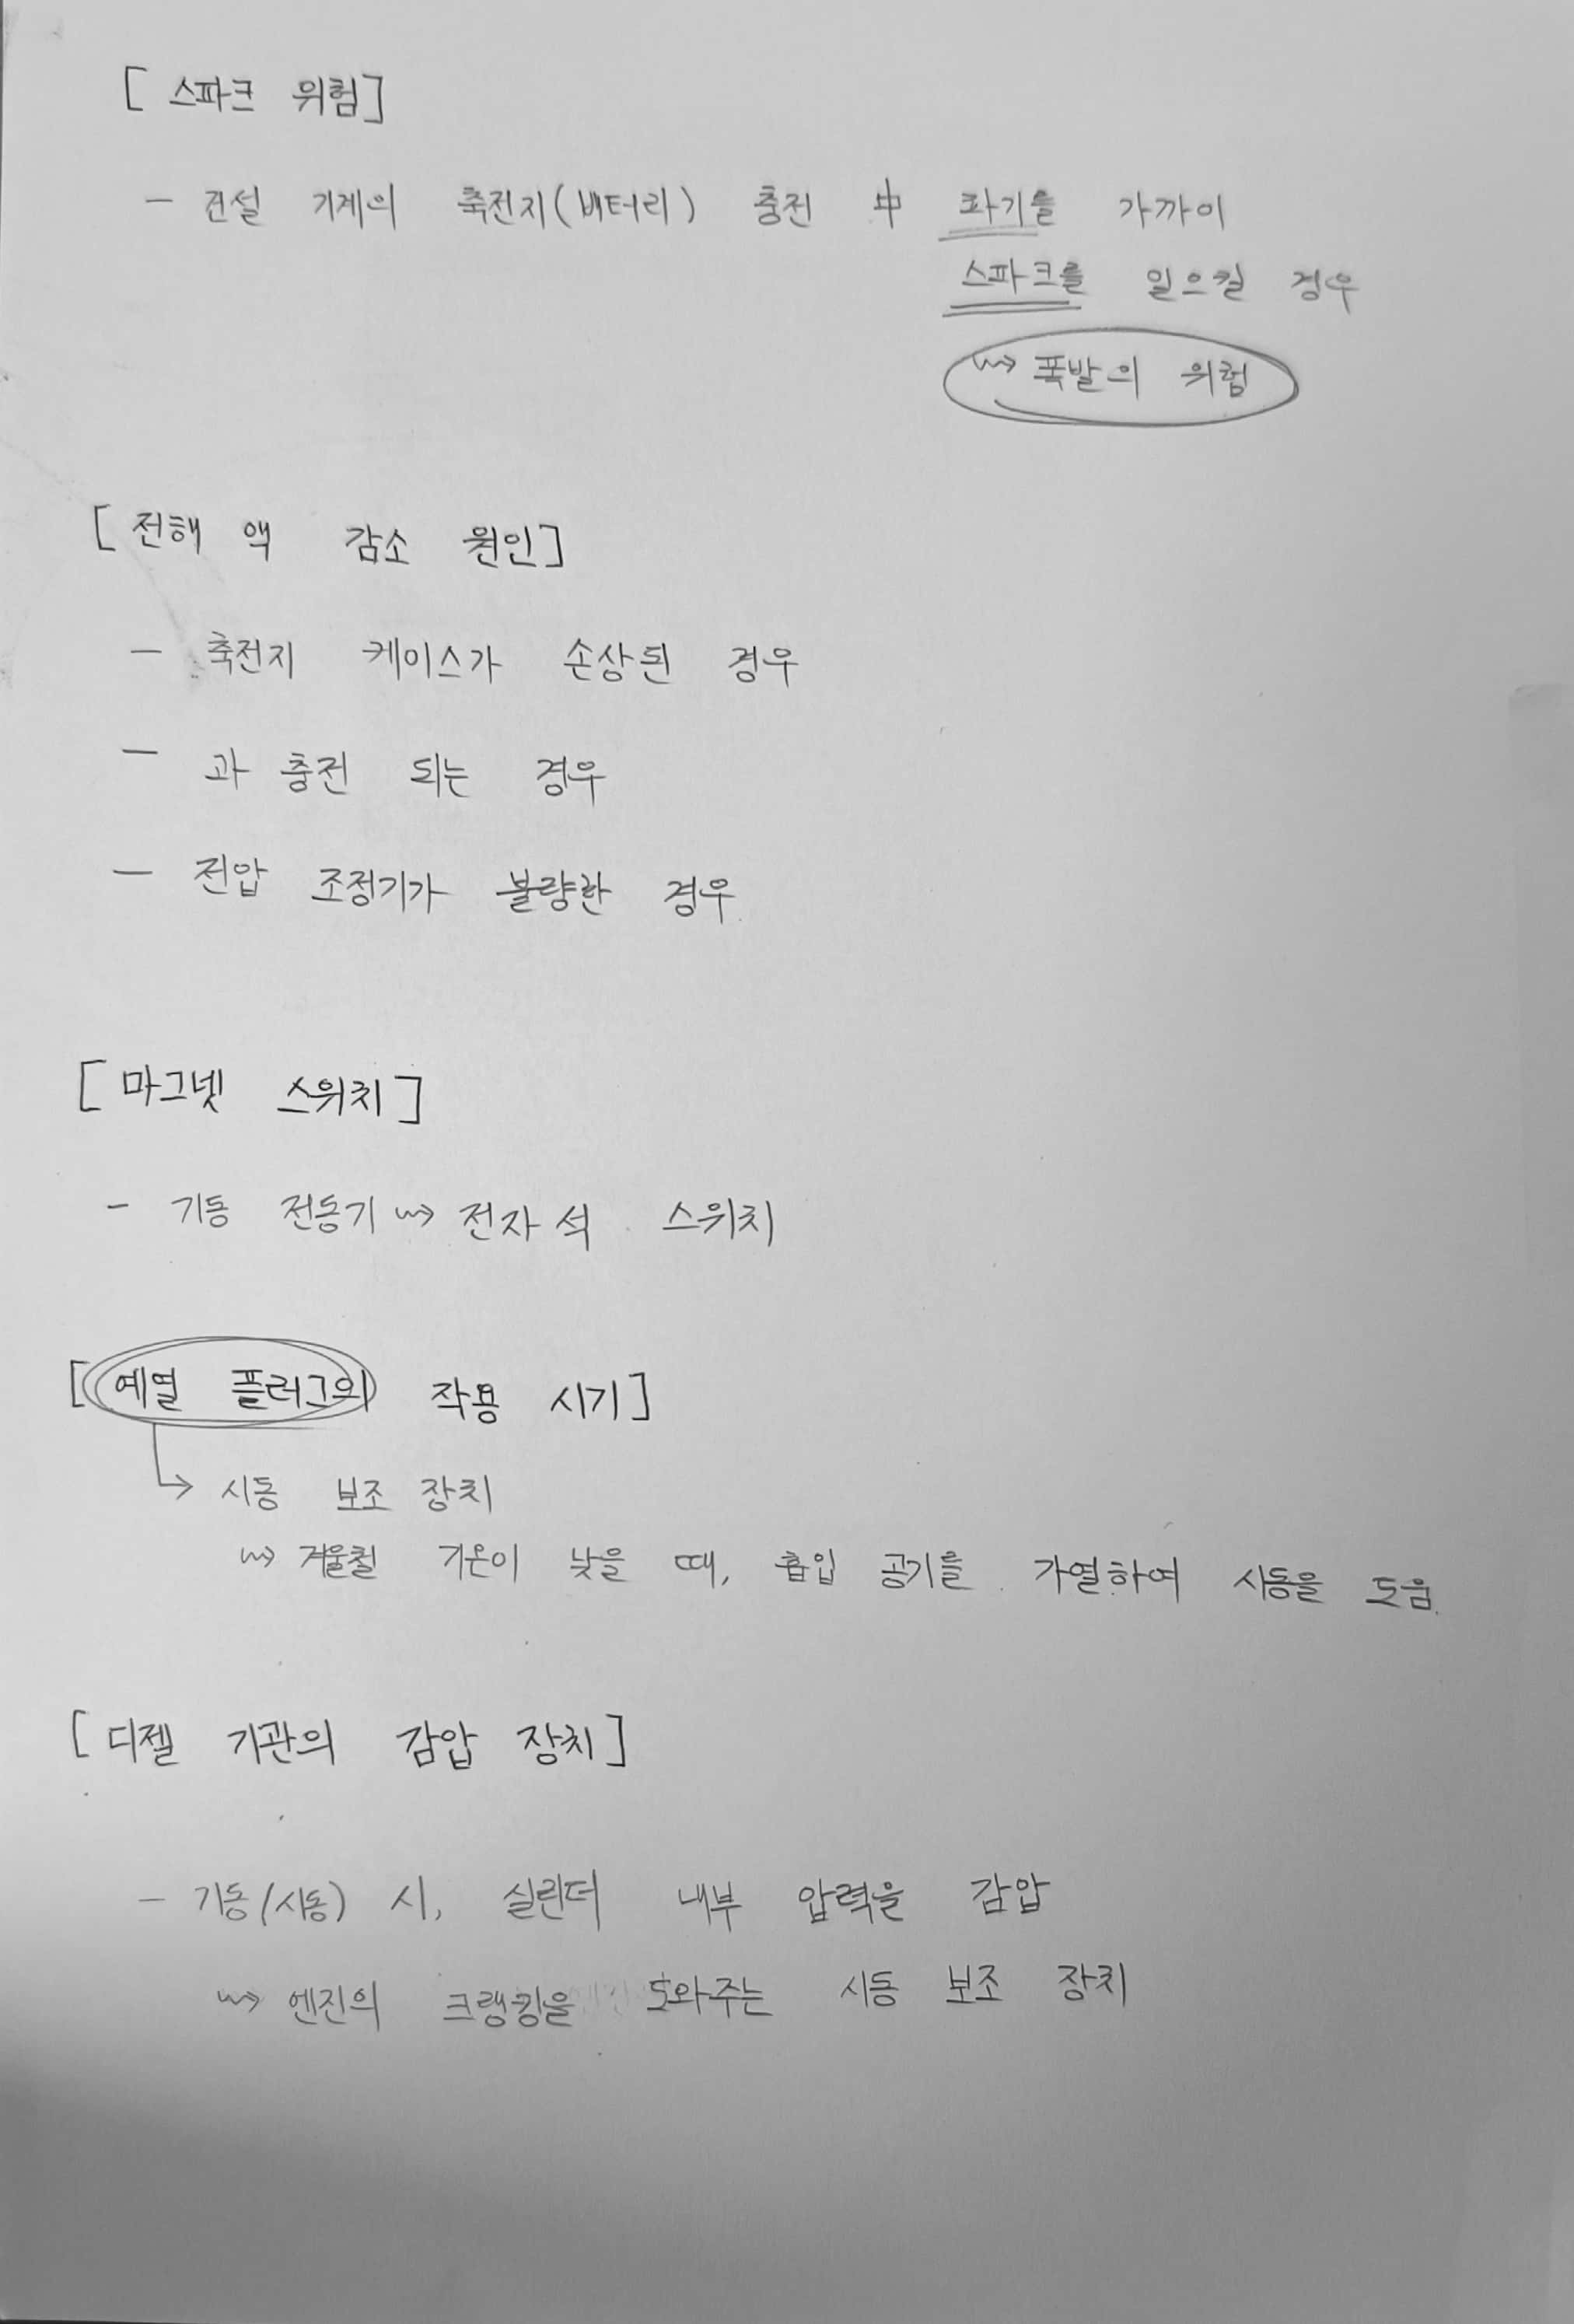 [ 스파크 위험]
- 건설 기계의 축전지(배터리) 충전 中 화기를 가까이
스파크를 일으킬 경우
⇝ 폭발의 위험
[ 전해 액 감소 원인]
- 축전지 케이스가 손상된 경우
- 과 충전 되는 경우
- 전압 조정기가 불량한 경우
[ 마그넷 스위치 ]
- 기동 전동기 ⇝ 전자 석 스위치
[ 예열 플러그의 작용 시기 ]
↳ 시동 보조 장치
⇝ 겨울철 기온이 낮을 때, 흡입 공기를 가열하여 시동을 도움.
[ 디젤 기관의 감압 장치 ]
- 기동(시동) 시, 실린더 내부 압력을 감압
⇝ 엔진의 크랭킹을 도와주는 시동 보조 장치